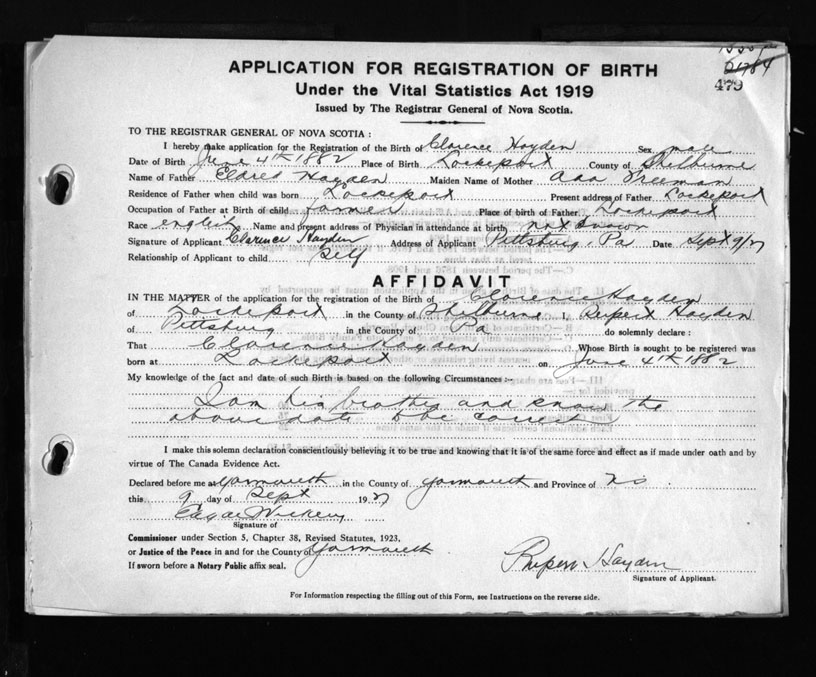 21784
479
APPLICATION FOR REGISTRATION OF BIRTH
Under the Vital Statistics Act 1919
Issued by The Registrar General of Nova Scotia.
TO THE REGISTRAR GENERAL OF NOVA SCOTIA :
I hereby make application for the Registration of the Birth of Clarence Hayden Sex male
Date of Birth June 4th 1882 Place of Birth Lockeport County of Shelburne
Name of Father Eldred Hayden Maiden Name of Mother Ada Freeman
Residence of Father when child was born Lockeport Present address of Father Lockeport
Occupation of Father at Birth of child farmer Place of birth of Father Lockeport
Race english Name and present address of Physician in attendance at birth not known
Signature of Applicant Clarence Hayden Address of Applicant Pittsburg, Pa Date Sept 9/27
Relationship of Applicant to child Self
AFFIDAVIT
IN THE MATTER of the application for the registration of the Birth of Clarence Hayden
of Lockeport in the County of Shelburne I, Rupert Hayden
of Pittsburg in the County of Pa do solemnly declare :
That Clarence Hayden Whose Birth is sought to be registered was
born at Lockeport on June 4th 1882
My knowledge of the fact and date of such Birth is based on the following Circumstances :-
I am his brother and know the
above date to be correct
I make this solemn declaration conscientiously believing it to be true and knowing that it is of the same force and effect as if made under oath and by
virtue of The Canada Evidence Act.
Declared before me at Yarmouth in the County of Yarmouth and Province of NS
this 9 day of Sept 1927
Edgar
Signature of
Commissioner under Section 5, Chapter 38, Revised Statutes, 1923,
or Justice of the Peace in and for the County of Yarmouth
If sworn before a Notary Public affix seal.
Rupert Hayden
Signature of Applicant.
For Information respecting the filling out of this Form, see Instructions on the reverse side.